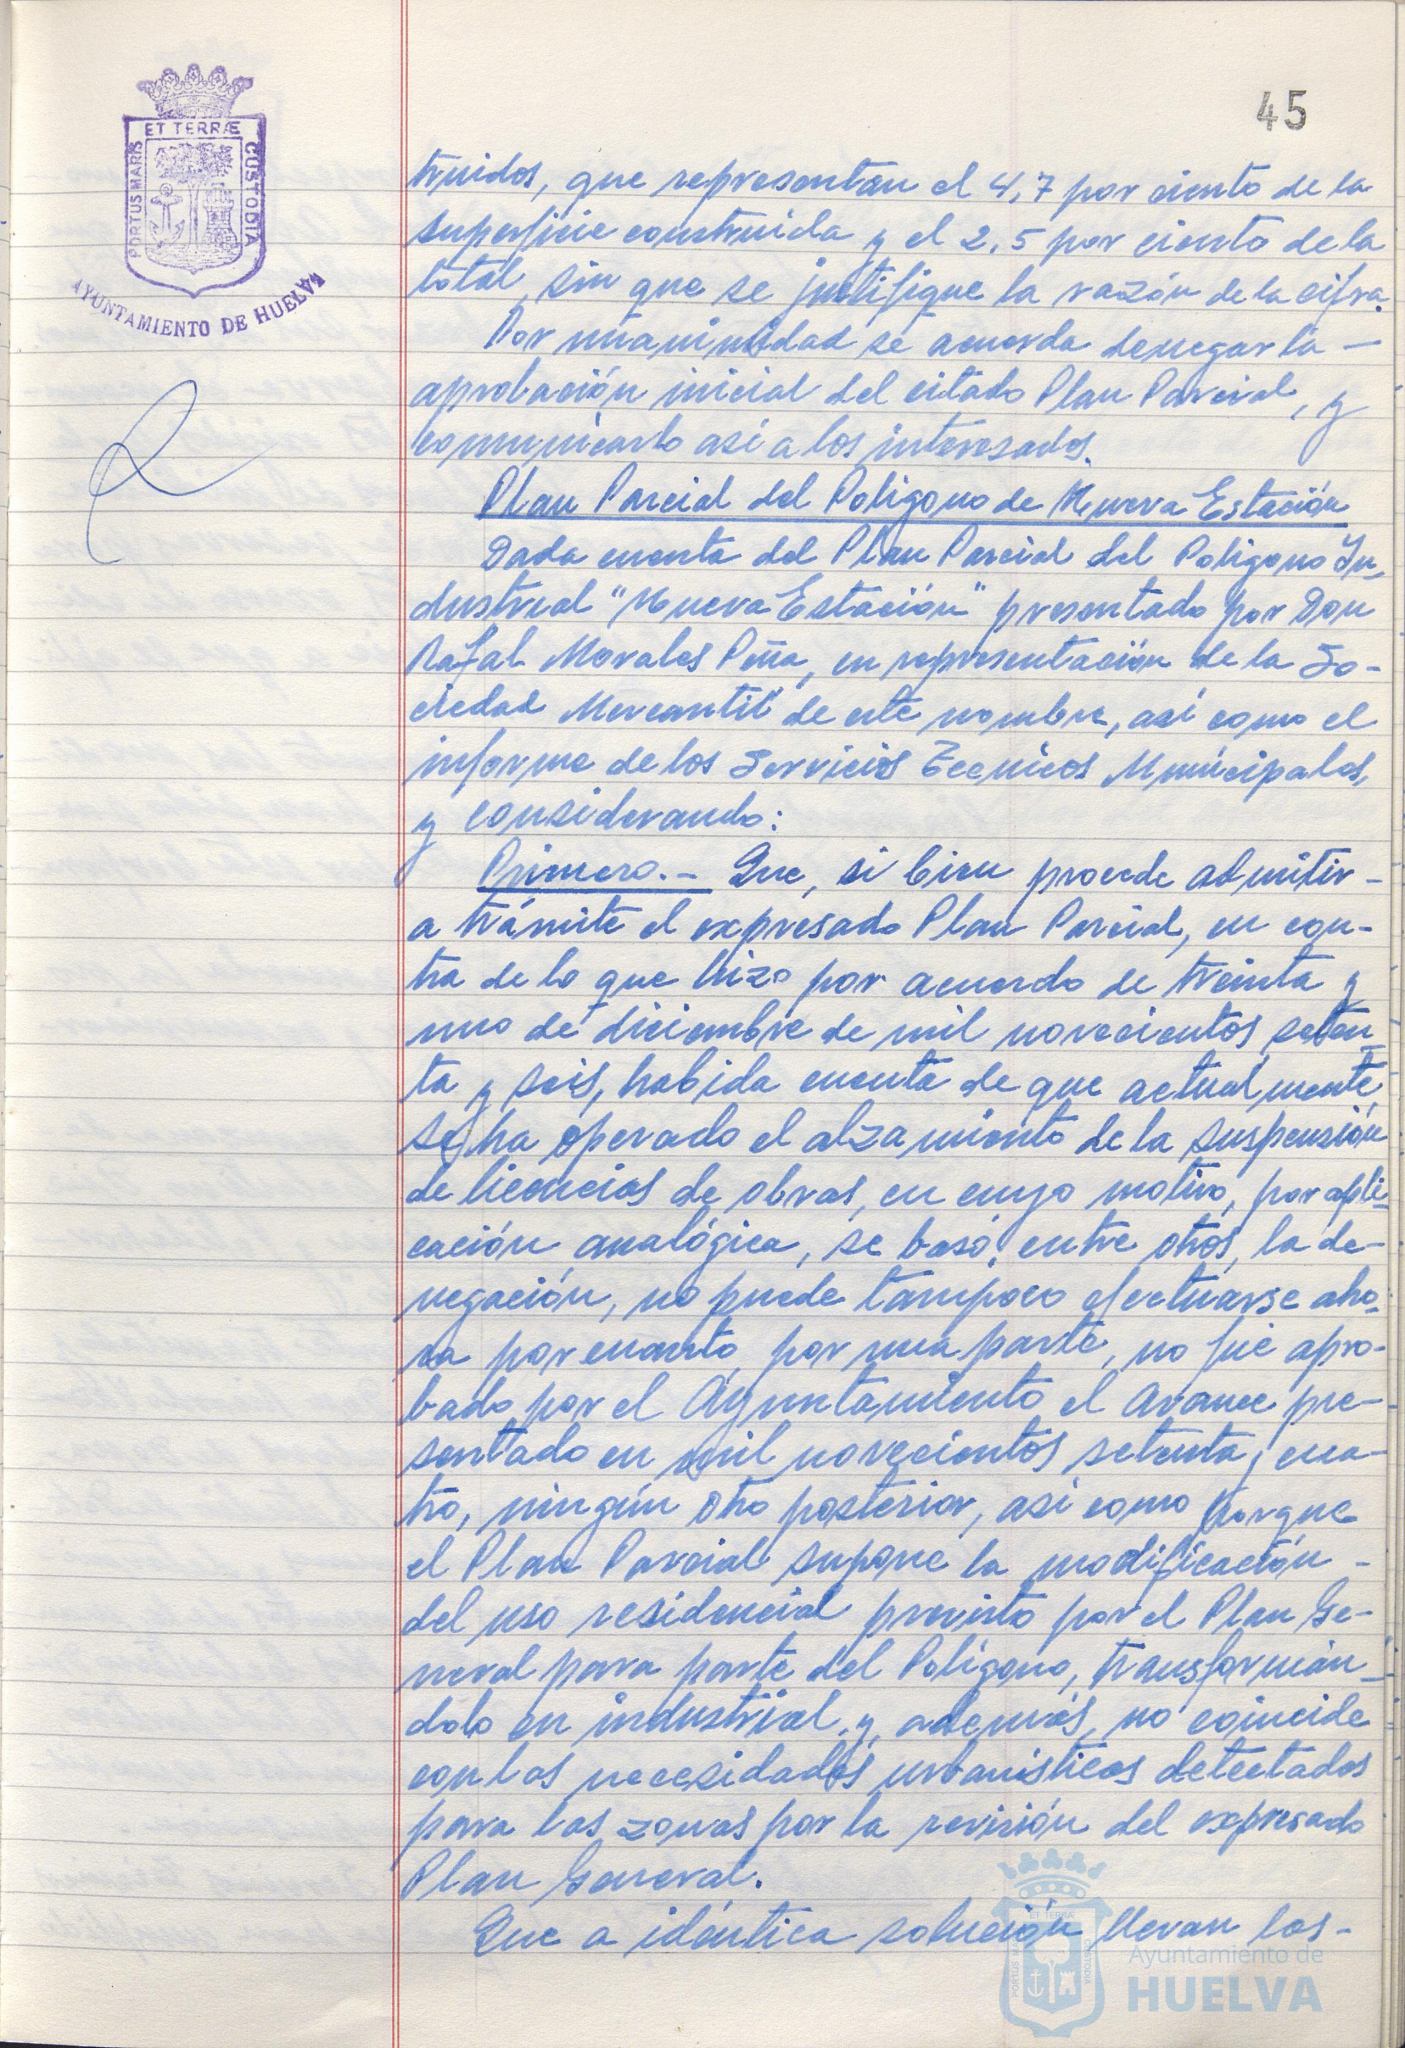 45
ET TERRÆ
PORTUS MARIS
CUSTODIA
AYUNTAMIENTO DE HUELVA
truidos, que representan el 4,7 por ciento de la
superficie construida y el 2,5 por ciento de la
total, sin que se justifique la razón de la cifra.
Por unanimidad se acuerda denegar la —
aprobación inicial del citado Plan Parcial, y
comunicarlo así a los interesados.
Plan Parcial del Polígono de Nueva Estación
Dada cuenta del Plan Parcial del Polígono In-
dustrial "Nueva Estación" presentado por Don
Rafal Morales Peña, en representación de la So-
ciedad Mercantil de este nombre, así como el
informe de los Servicios Técnicos Municipales,
y considerando:
Primero.- Que, si bien procede admitir -
a trámite el expresado Plan Parcial, en con-
tra de lo que hizo por acuerdo de treinta y
uno de diciembre de mil novecientos seten
ta y seis, habida cuenta de que actualmente
se ha operado el alzamiento de la suspensión
de licencias de obras, en cuyo motivo, por apli-
cación analógica, se basó, entre otros, la de-
negación, no puede tampoco efectuarse aho-
ra por cuanto, por una parte, no fue apro-
bado por el Ayuntamiento el Avance pre-
sentado en mil novecientos setenta y cua-
tro, ningún otro posterior, así como porque
el Plan Parcial supone la modificación -
del uso residencial previsto por el Plan Ge-
neral para parte del Polígono, transformán-
dolo en industrial, y, además, no coincide
con las necesidades urbanísticas detectadas
para las zonas por la revisión del expresado
Plan General.
Que a idéntica solución llevan las -
Ayuntamiento de
HUELVA